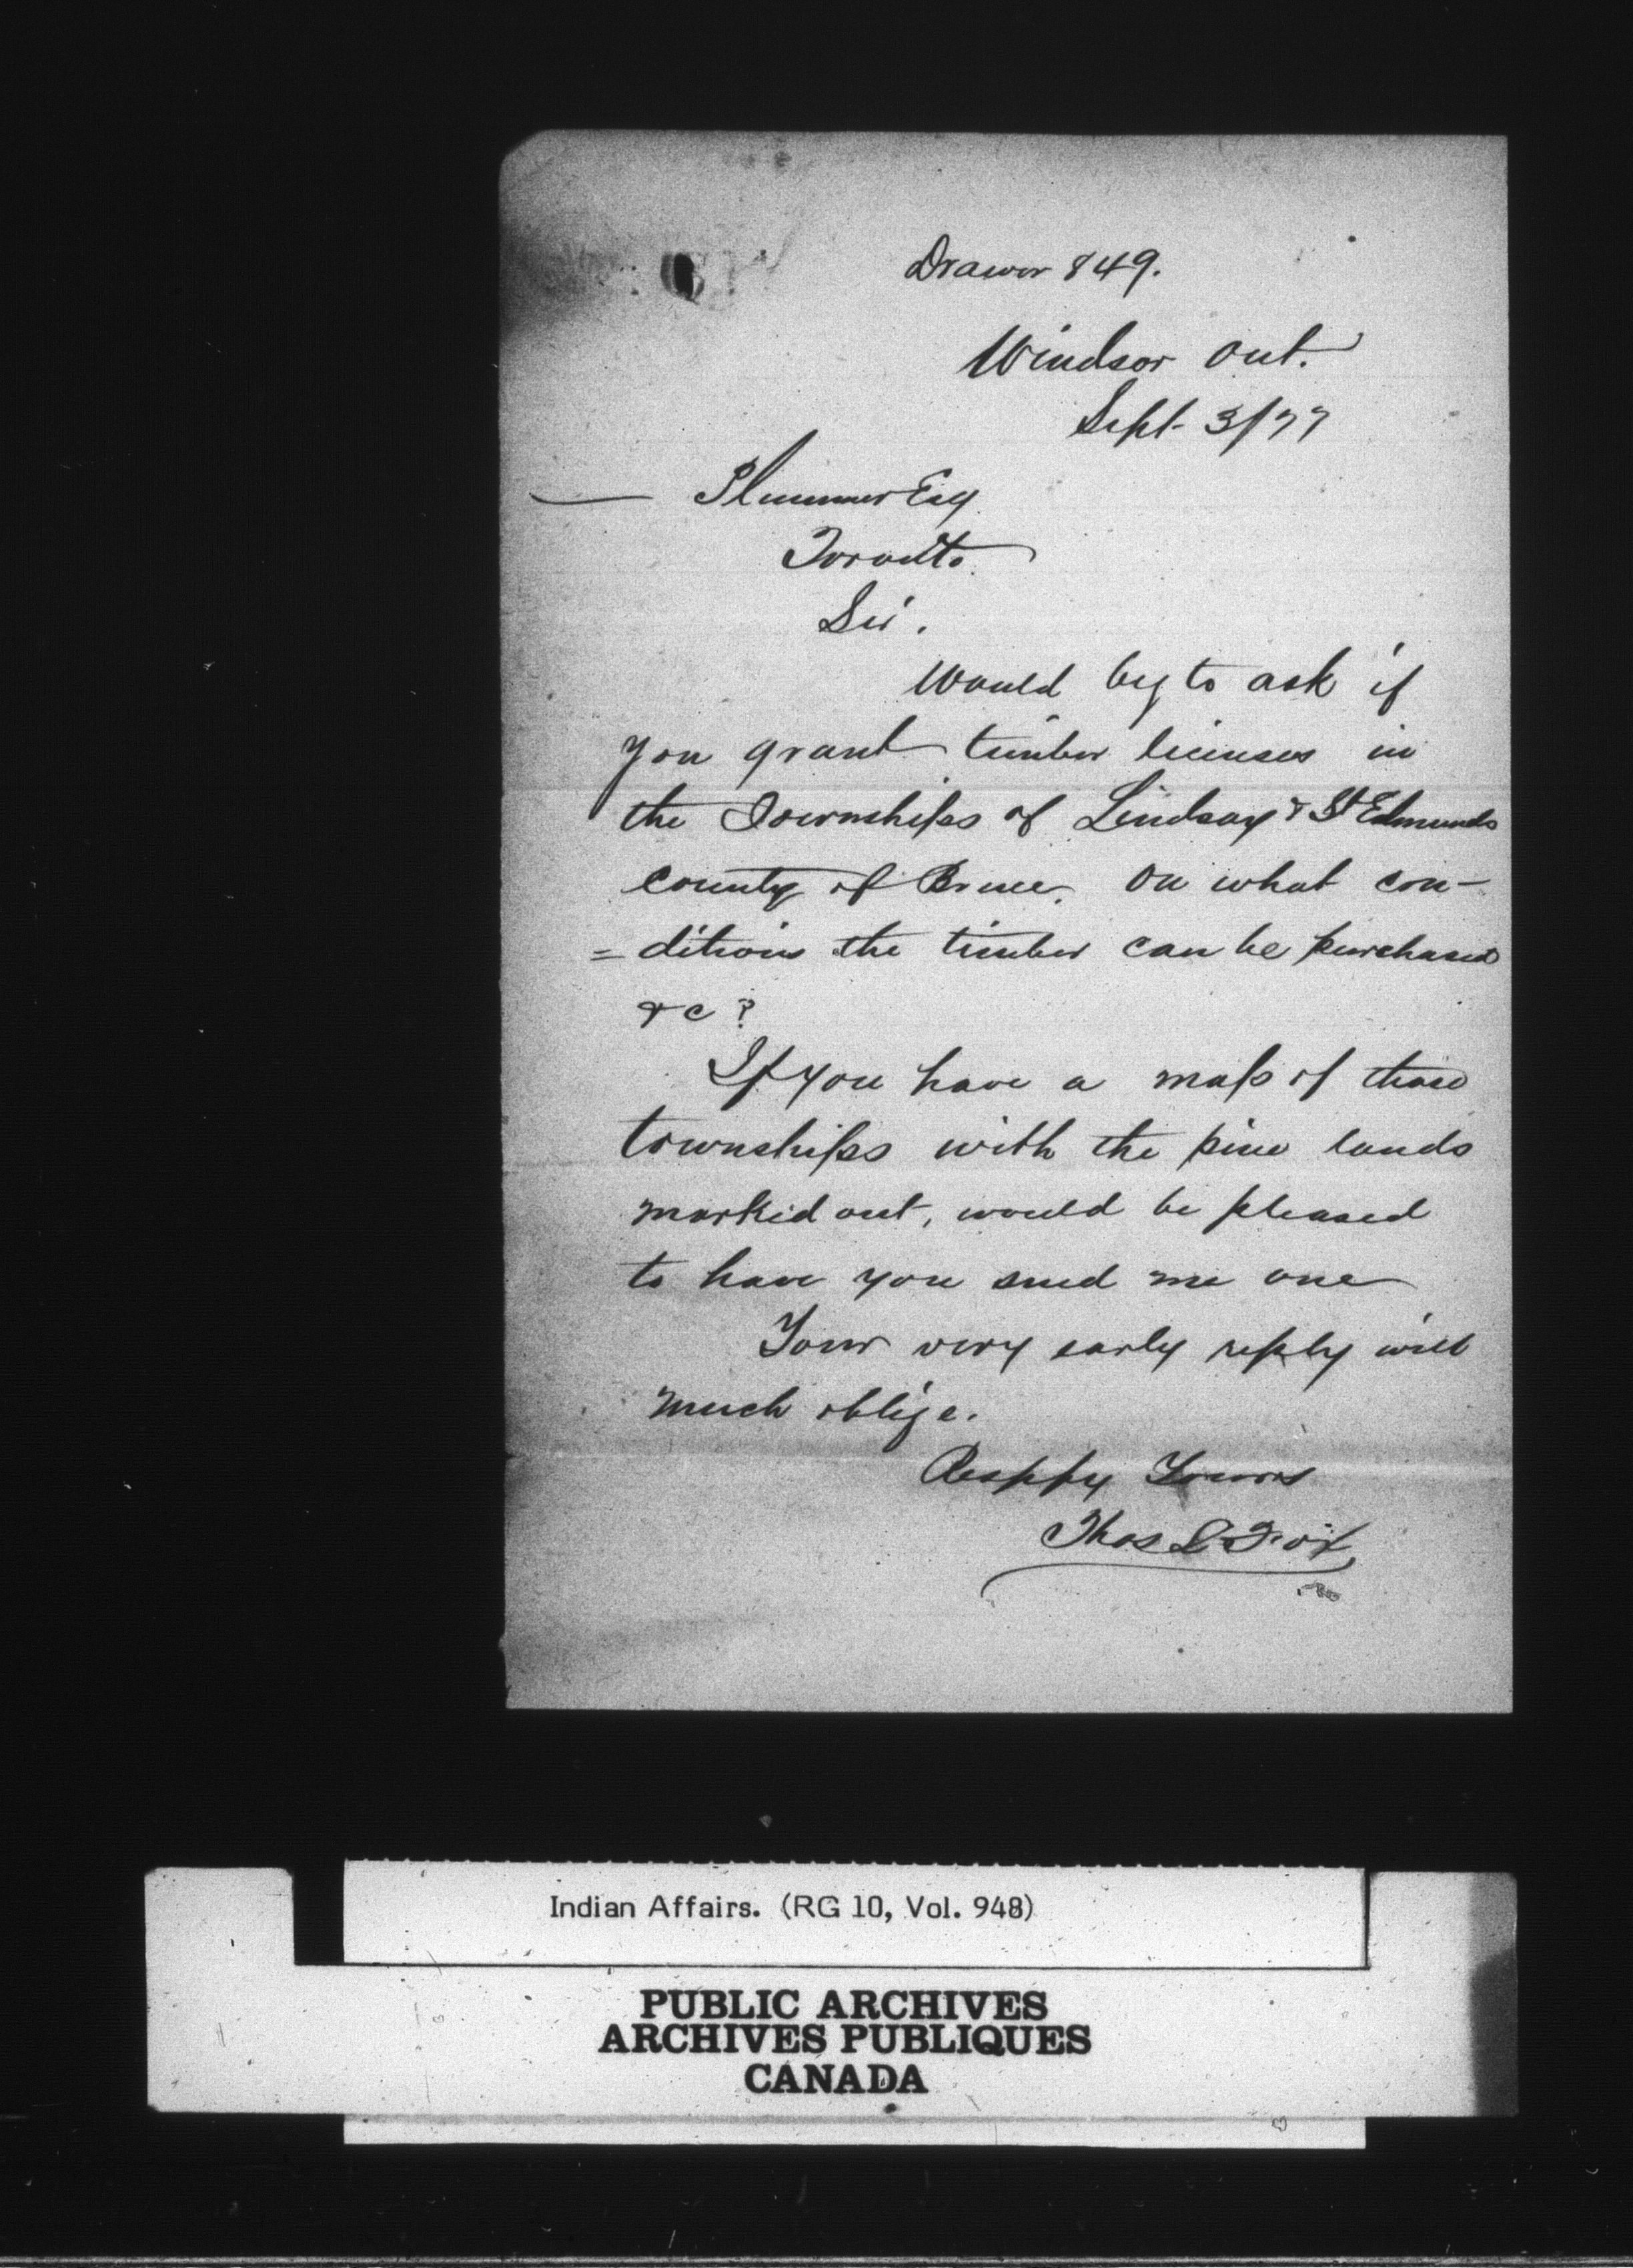 Drawer 849.
Windsor Ont.
Sept 3/77
— Plummer Esq
Toronto
Sir.
Would beg to ask if
you grant timber licenses in
the Townships of Lindsay & St Edmunds
County of Bruce. On what con-
=ditions the timber can be purchased
&c?
If you have a map of these
townships with the pine lands
marked out, would be pleased
to have you send me one
Your very early reply will
much oblige.
Respfy Yours
Thos L Fox
Indian Affairs. (RG 10, Vol. 948)
PUBLIC ARCHIVES
ARCHIVES PUBLIQUES
CANADA